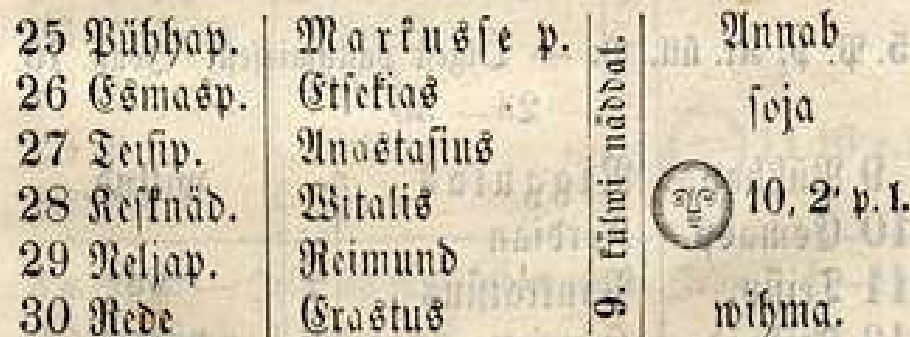 25 Pühhap. Markusse p. Annab
26 Esmasp. Etsekias soja
27 Teisip. Anastasius
28 Kesknäd. Witalis 10, 2' p. l.
29 Neljap. Reimund
30 Rede Erastus wihma.
9. külwi näddal.